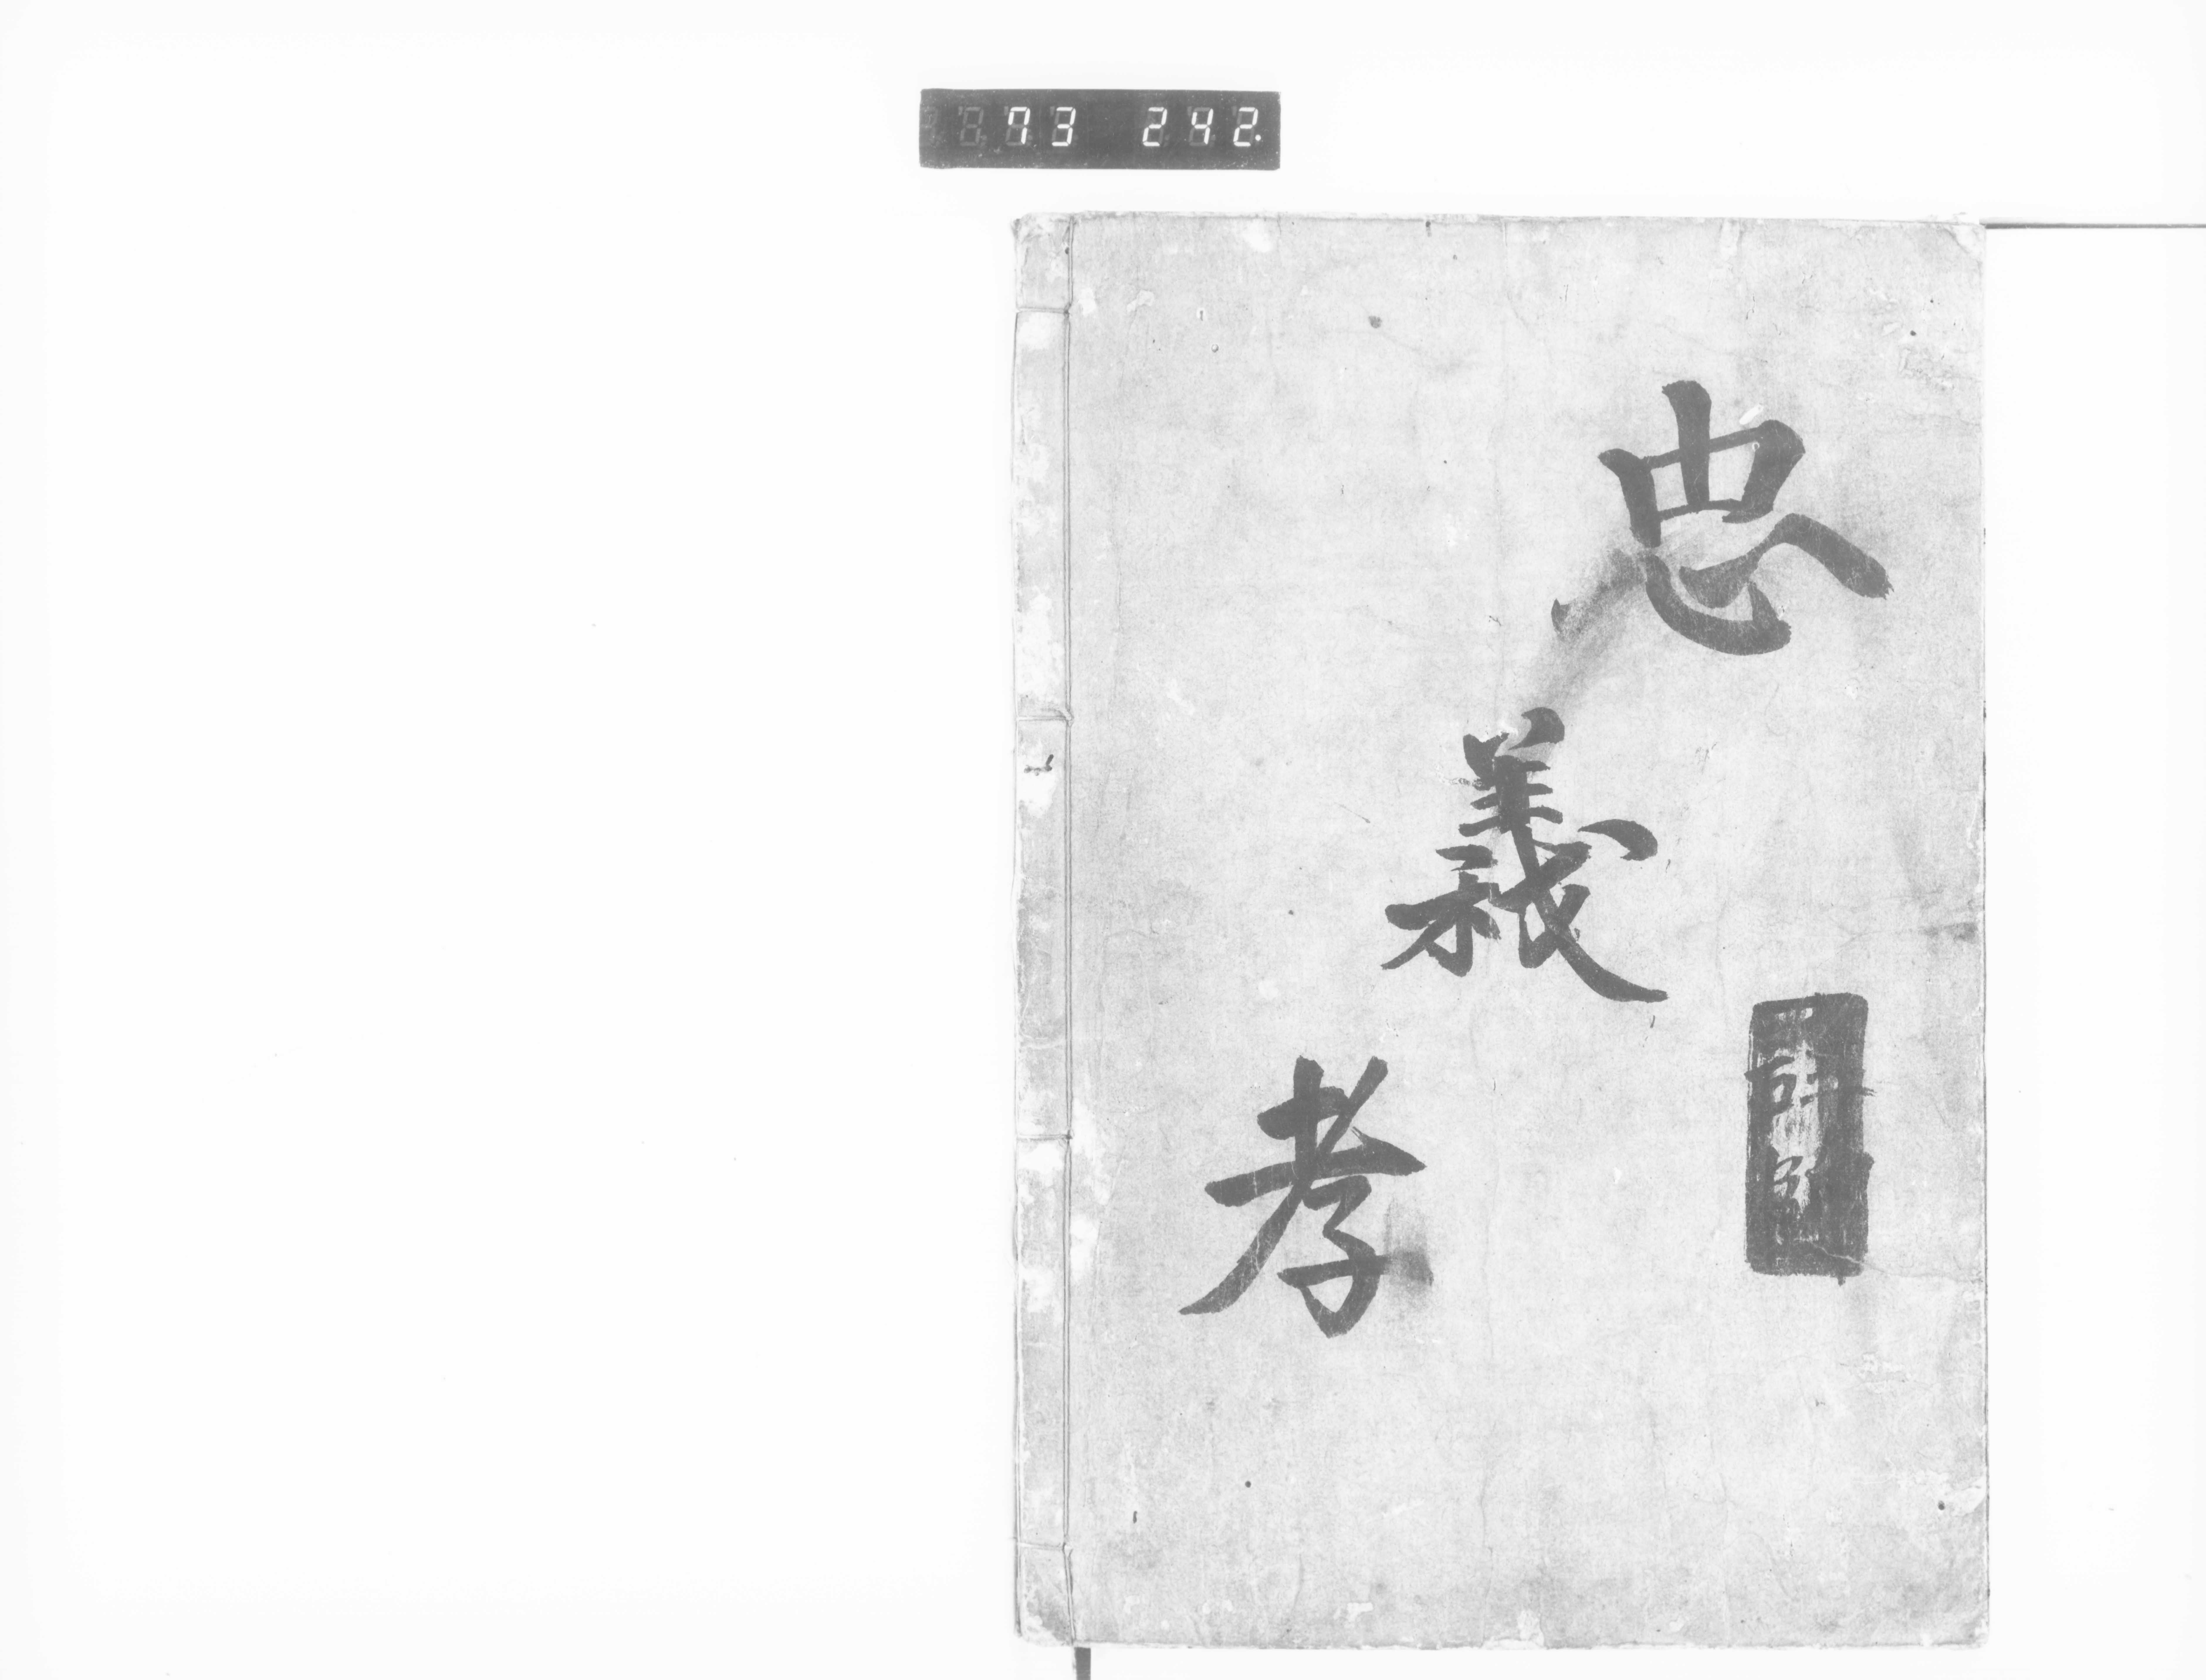 73 242.
忠
義
孝